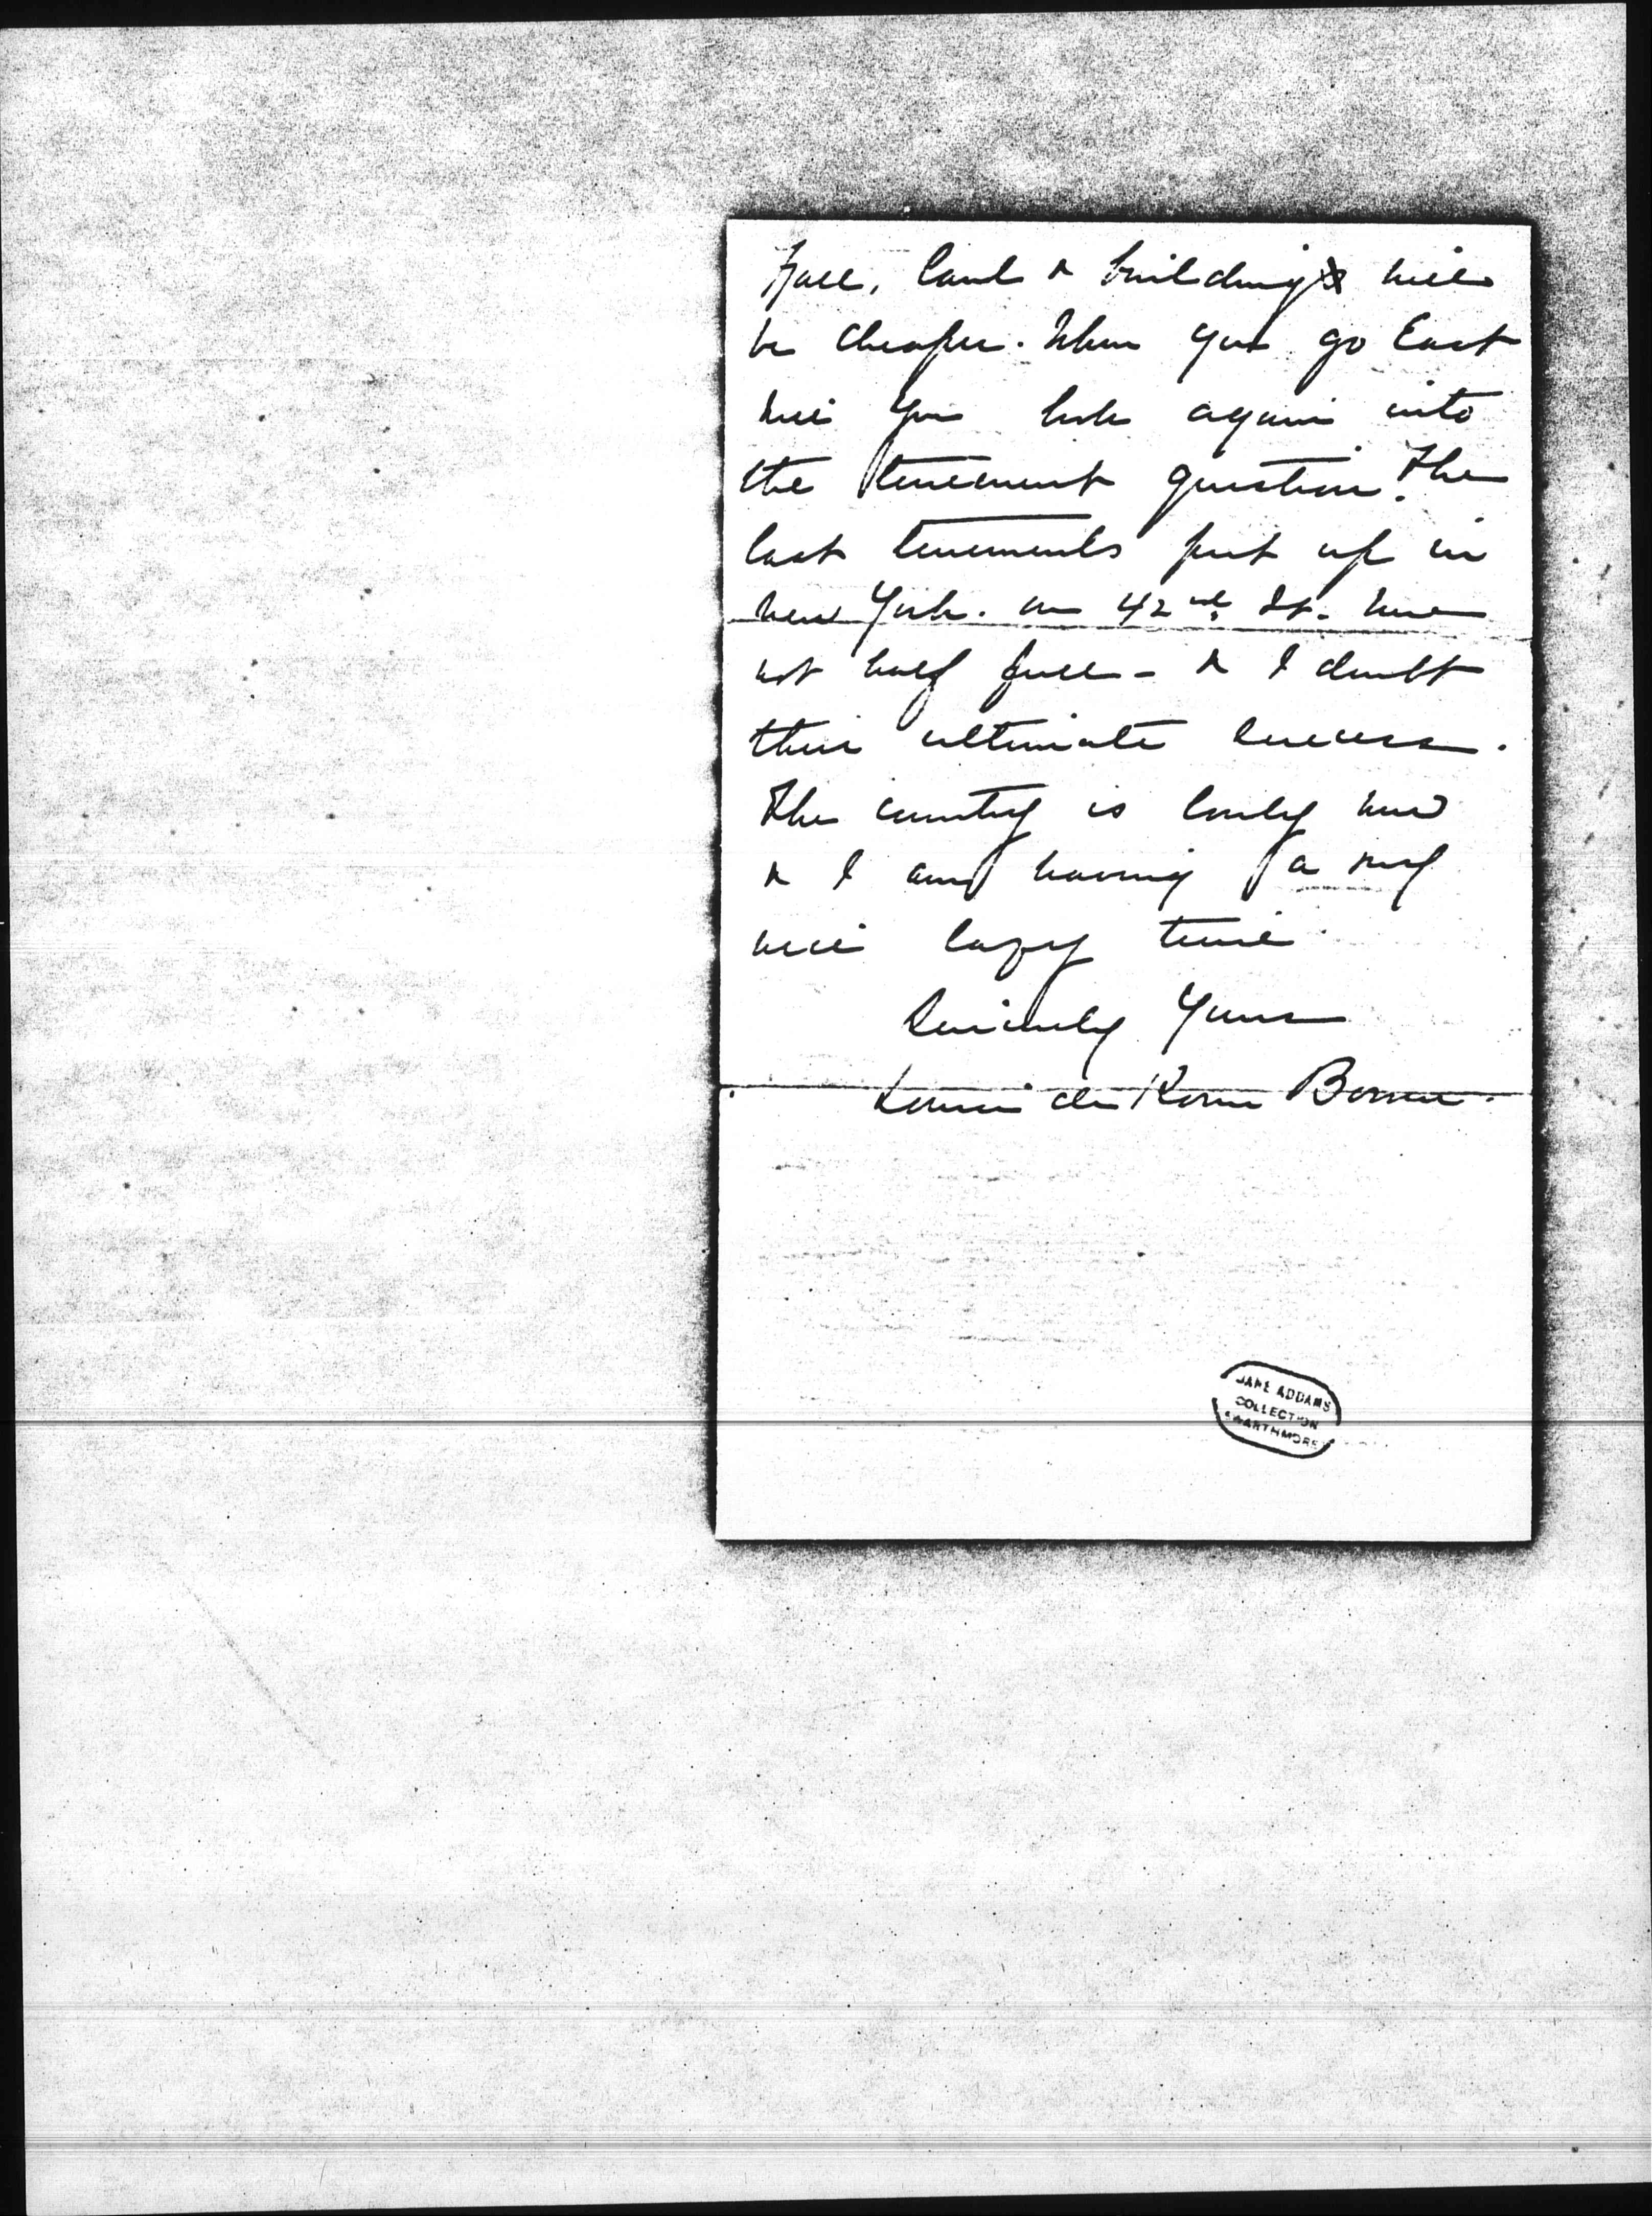 Fall, land & building will
be cheaper. When you go East
will you look again into
the tenement question? The
last tenements put up in
New York. on 42nd St. were
not half full - & I doubt
their ultimate success.
The country is lovely now
& I am having a very
nice lazy time.
Sincerely Yours
Louise de Koven Bowen.
JANE ADDAMS
COLLECTION
SWARTHMORE